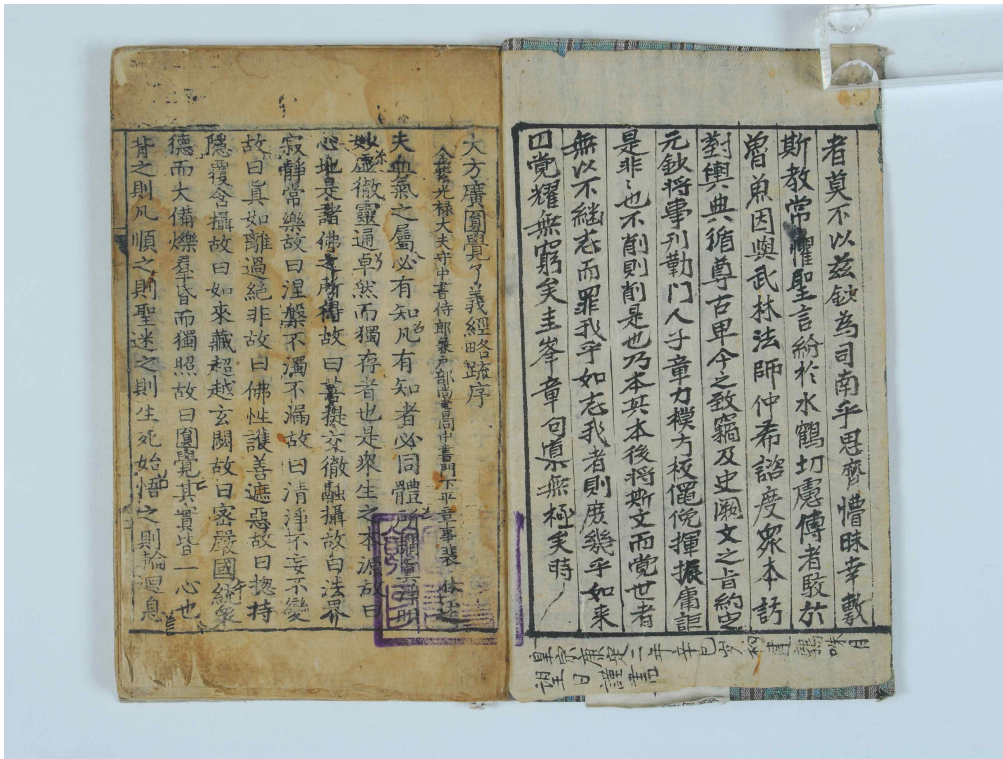 者莫不以兹鈔為司南乎思齊懵昧幸斅
斯教常懼聖言紛於水鶴切慮傳者敗於
魯魚因與武林法師仲希諮度衆本訪
對輿典循尊古卑今之致竊及史闕文之旨約定
元鈔將事刋勒門人子章力模方板僶俛揮振庸詎
是非〻也不削則削是也乃本其本後將斯文而覺世者
無以不継志而罪我乎如志我者則庶幾乎如来
四覚耀無窮矣圭峯章句禀無極矣時
皇宋康定二年辛巳 月
望日謹書
大方廣圎覺了義經略䟽序
金紫光禄大夫守中書侍郎兼戶部尚書同中書門下平章事裴休述
夫血氣之屬必有知凡有知者必同體所謂真淨明
妙虛徹靈通卓然而獨存者也是衆生之本源故曰
心地是諸佛之所得故曰菩提交徹融攝故曰法界
寂靜常樂故曰涅槃不濁不漏故曰清淨不妄不變
故曰眞如離過絕非故曰佛性護善遮惡故曰摠持
隱覆含攝故曰如來藏超越玄閟故曰密嚴國統衆
德而大備爍羣昏而獨照故曰圓覺其實皆一心也
背之則凡順之則聖迷之則生死始悟之則輪迴息